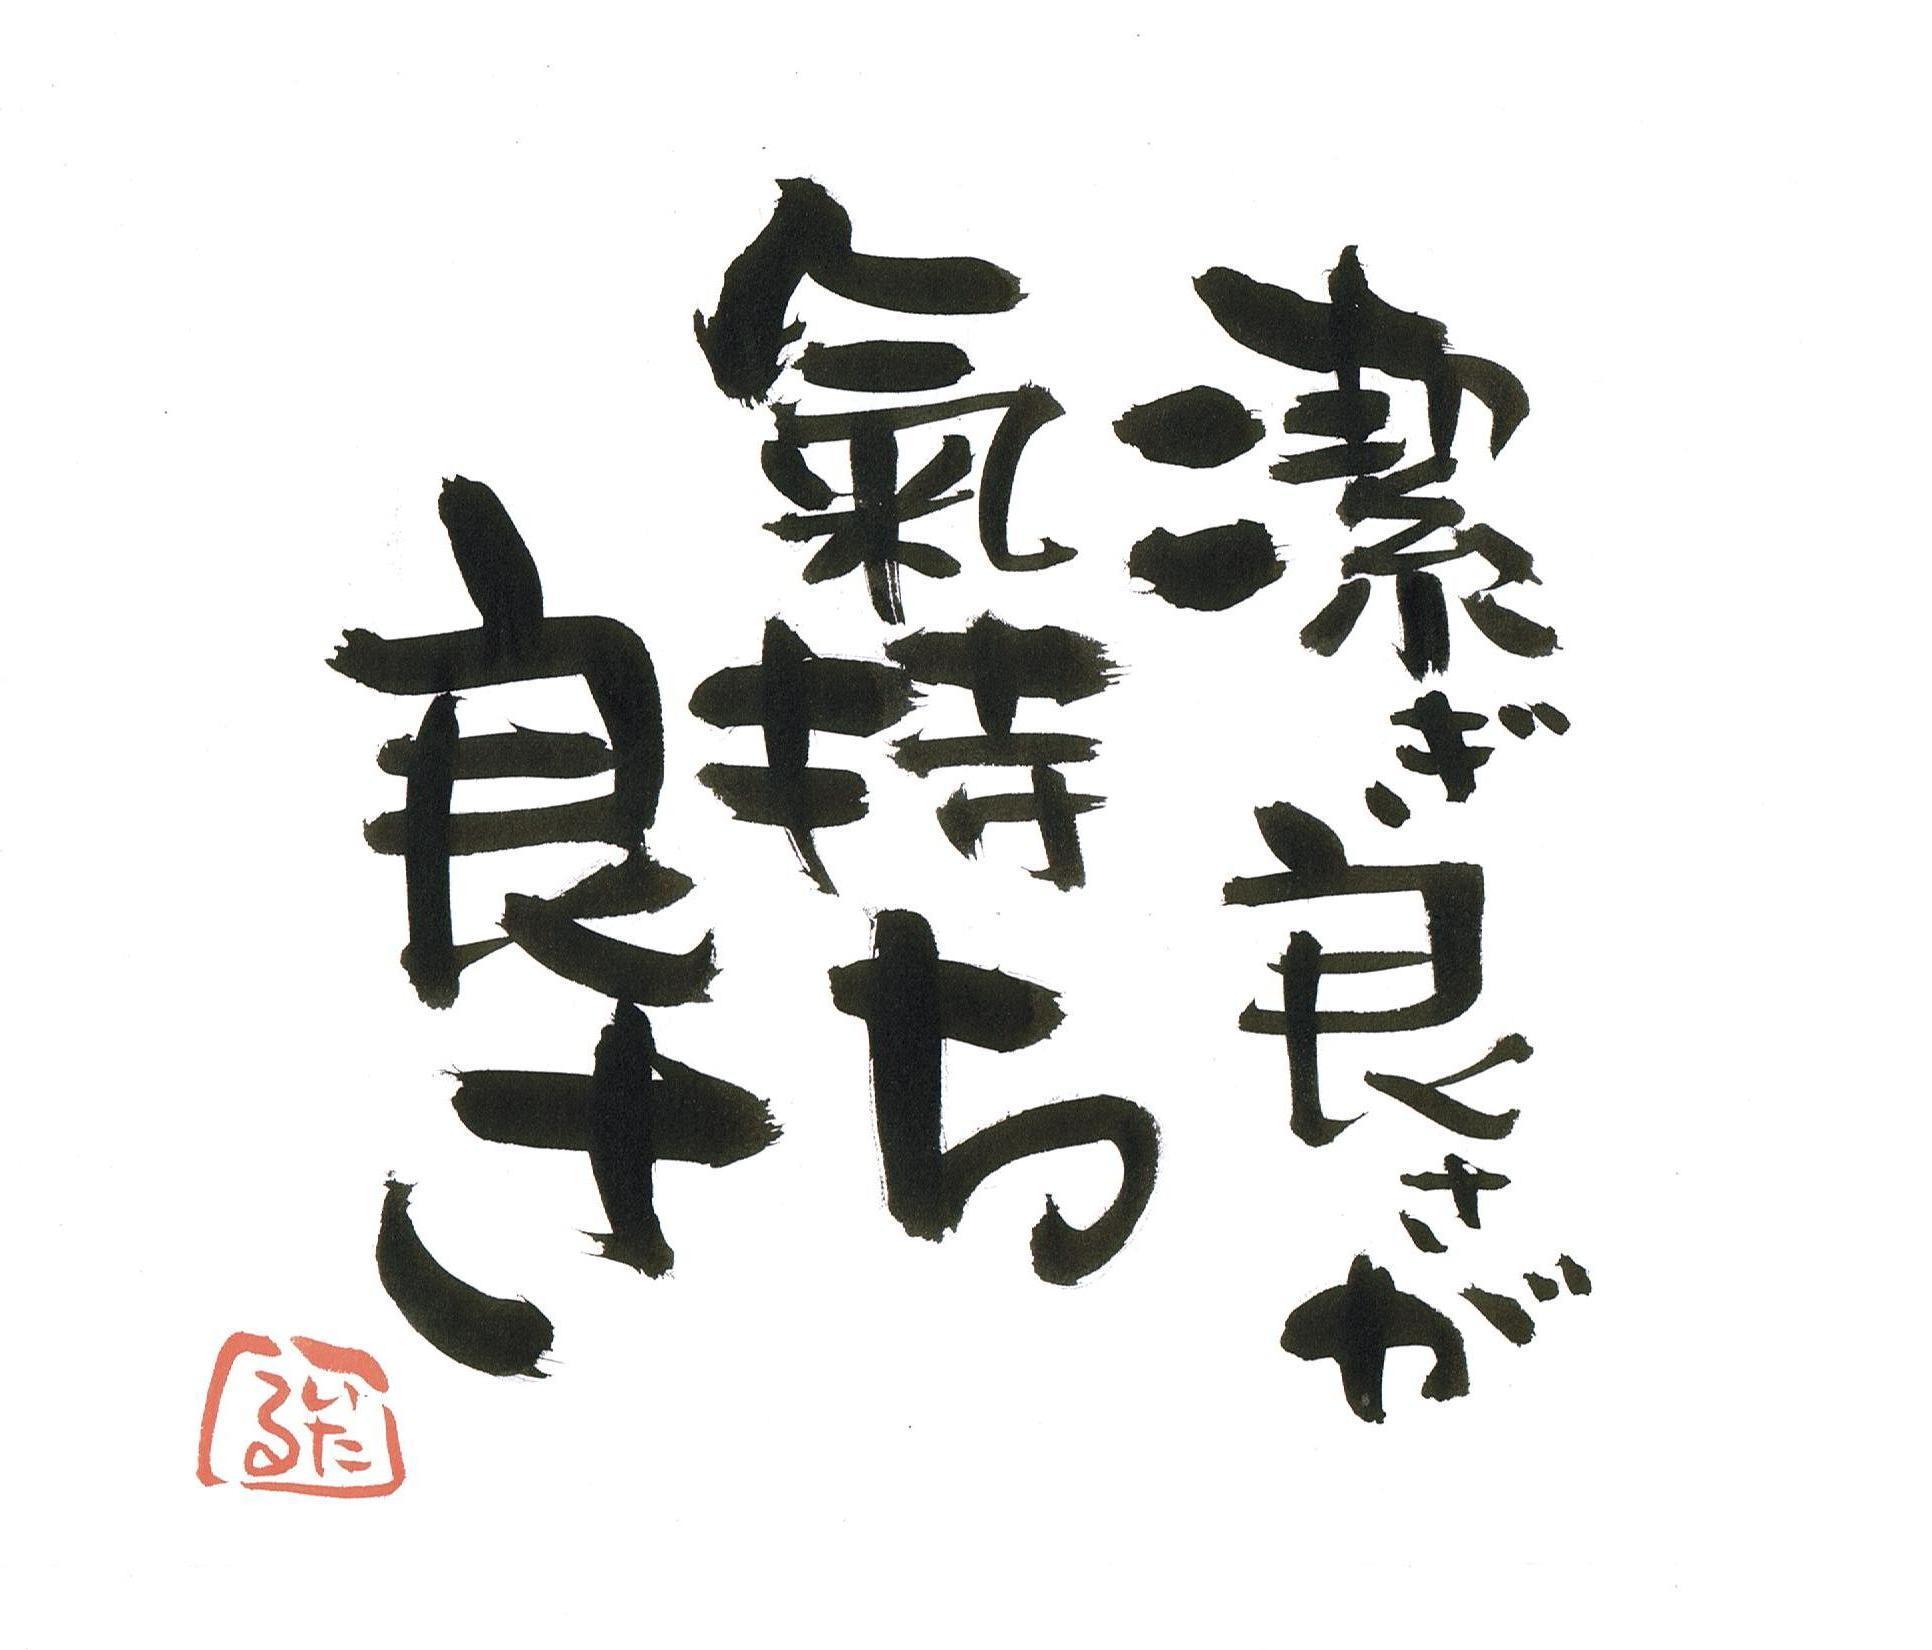 潔ぎ良さが
氣持ち
良さ
いたる